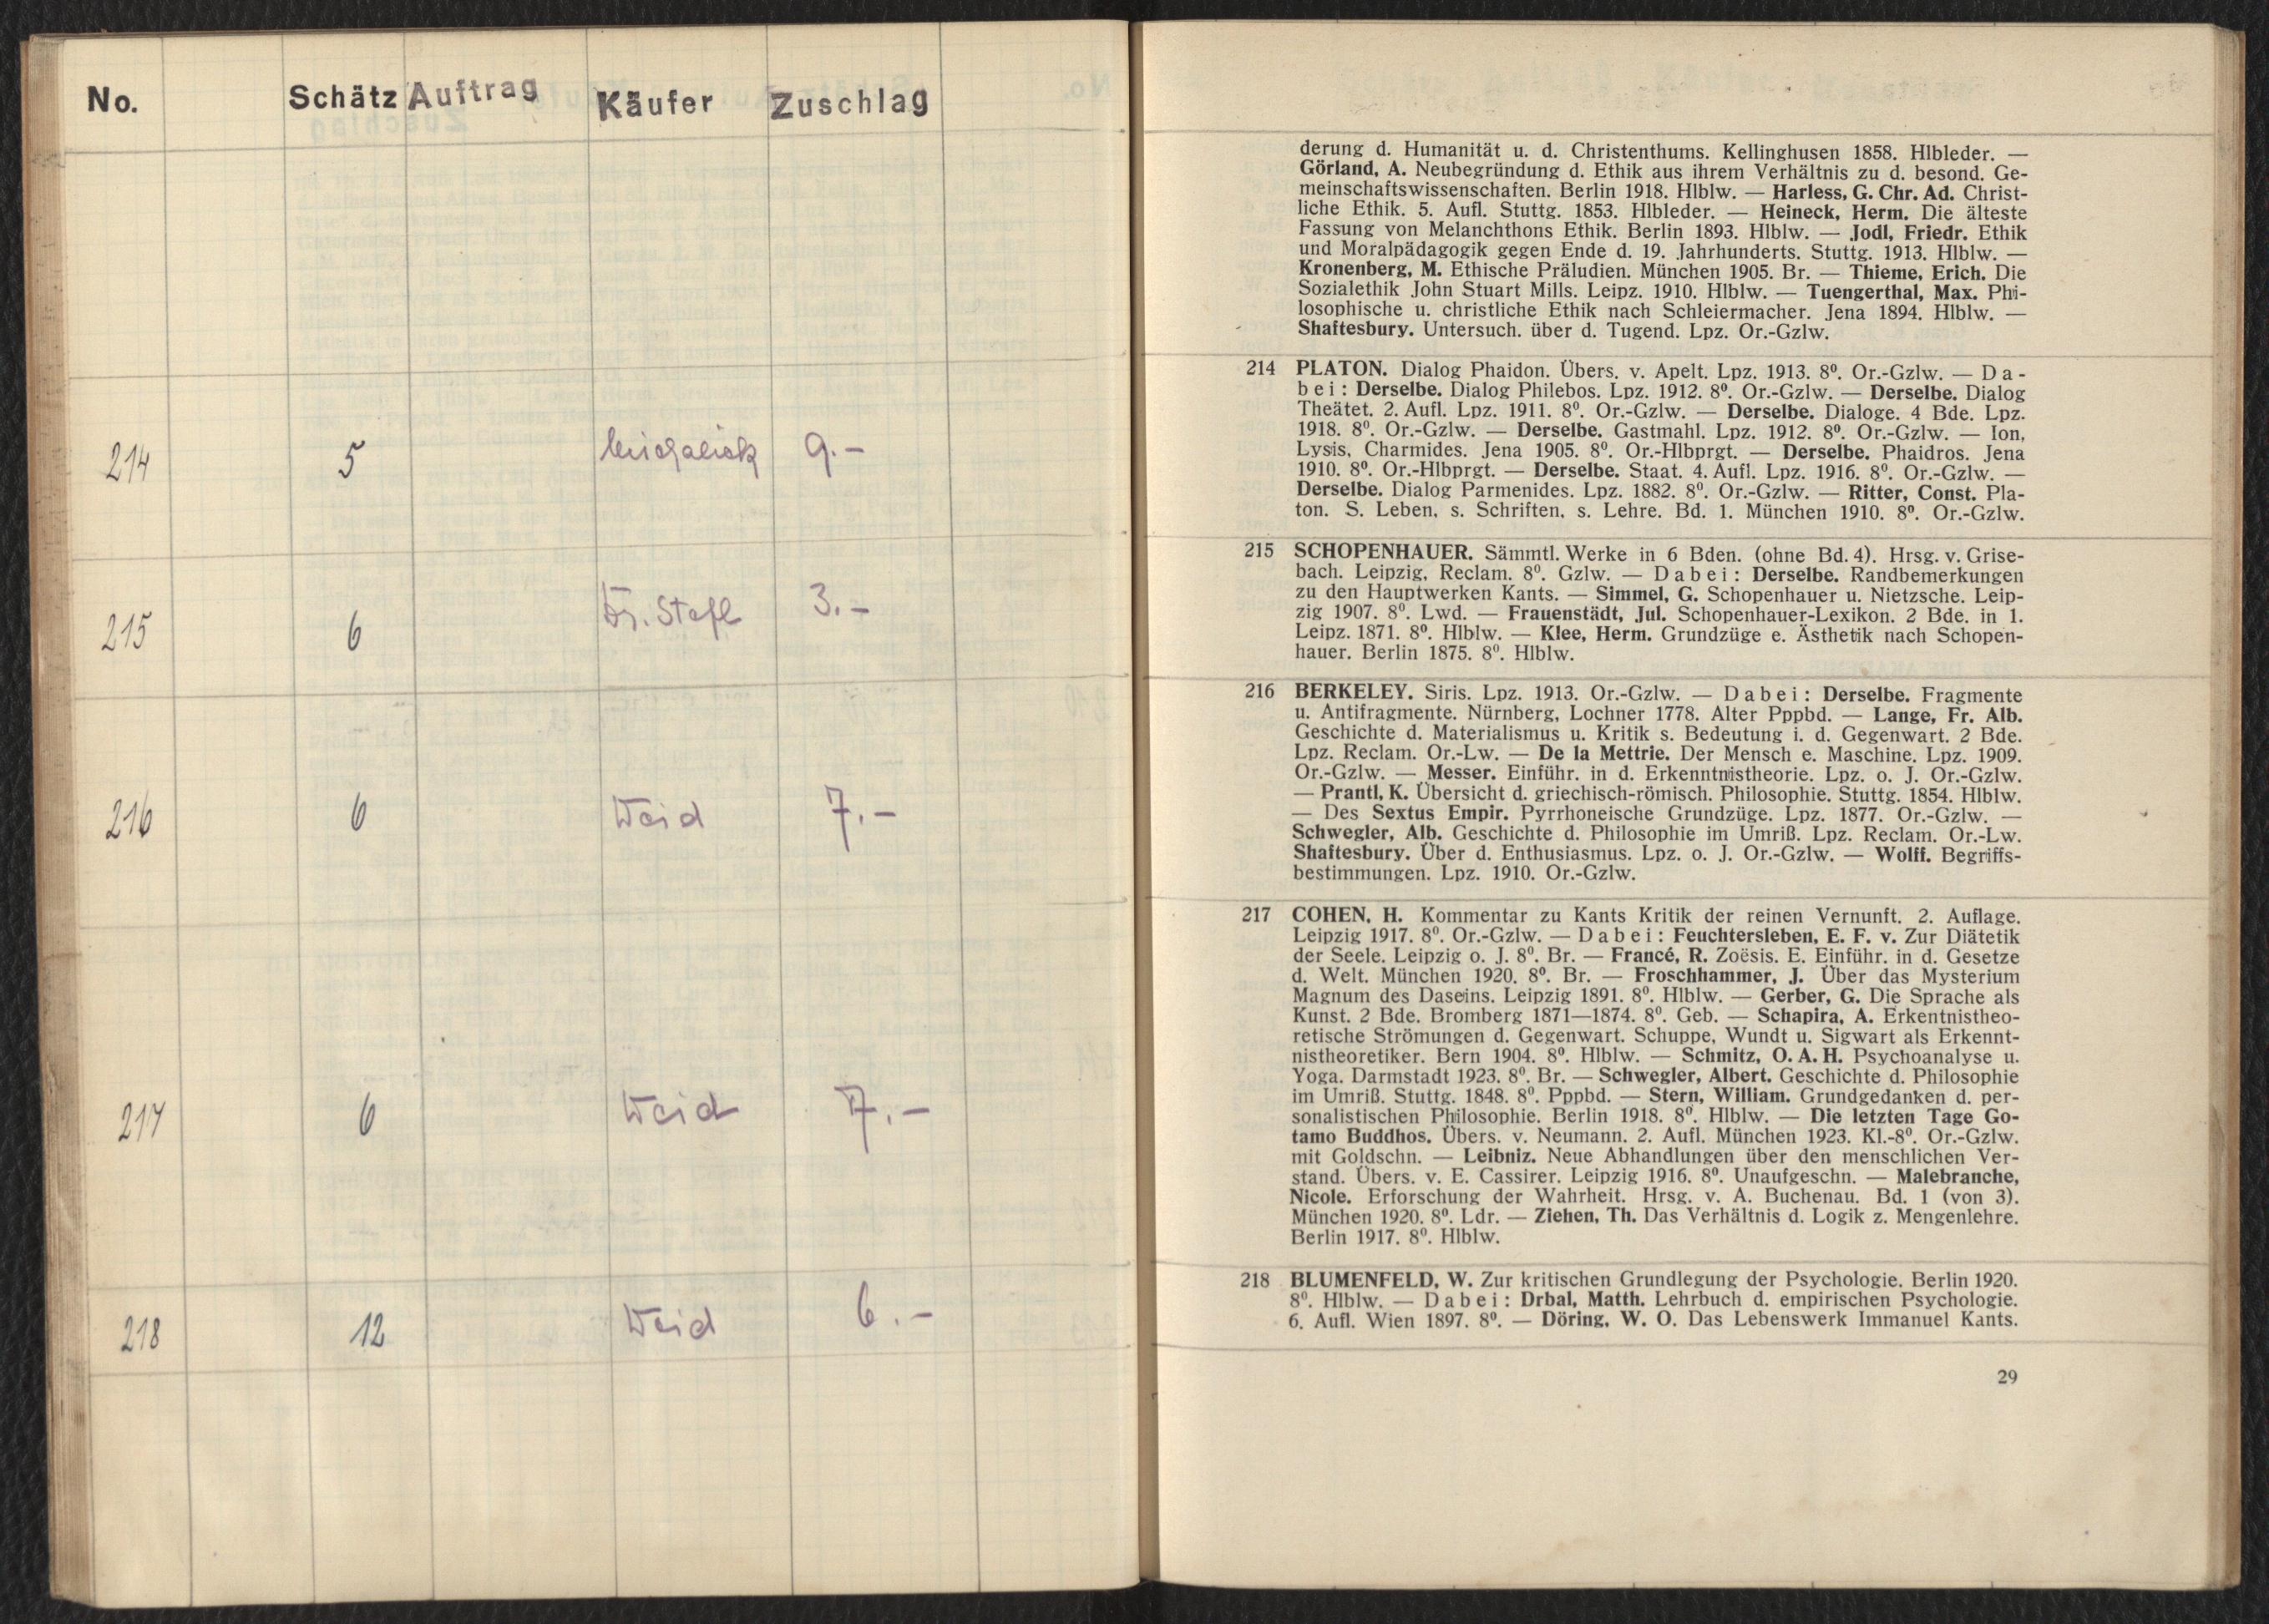 No. Schätz Auftrag Käufer Zuschlag
214 5 9.-
215 6 Dr. Stefl 3.-
216 6 Weid 7.-
217 6 Weid 7.-
218 12 Weid 6.-
derung d. Humanität u. d. Christenthums. Kellinghusen 1858. Hlbleder. —
Görland, A. Neubegründung d. Ethik aus ihrem Verhältnis zu d. besond. Ge-
meinschaftswissenschaften. Berlin 1918. Hlblw. — Harless, G. Chr. Ad. Christ-
liche Ethik. 5. Aufl. Stuttg. 1853. Hlbleder. — Heineck, Herm. Die älteste
Fassung von Melanchthons Ethik. Berlin 1893. Hlblw. — Jodl, Friedr. Ethik
und Moralpädagogik gegen Ende d. 19. Jahrhunderts. Stuttg. 1913. Hlblw. —
Kronenberg, M. Ethische Präludien. München 1905. Br. — Thieme, Erich. Die
Sozialethik John Stuart Mills. Leipz. 1910. Hlblw. — Tuengerthal, Max. Phi-
losophische u. christliche Ethik nach Schleiermacher. Jena 1894. Hlblw. —
Shaftesbury. Untersuch. über d. Tugend. Lpz. Or.-Gzlw.
214 PLATON. Dialog Phaidon. Übers. v. Apelt. Lpz. 1913. 8⁰. Or.-Gzlw. — Da-
bei: Derselbe. Dialog Philebos. Lpz. 1912. 8⁰. Or.-Gzlw. — Derselbe. Dialog
Theätet. 2. Aufl. Lpz. 1911. 8⁰. Or.-Gzlw. — Derselbe. Dialoge. 4 Bde. Lpz.
1918. 8⁰. Or.-Gzlw. — Derselbe. Gastmahl. Lpz. 1912. 8⁰. Or.-Gzlw. — Ion,
Lysis, Charmides. Jena 1905. 8⁰. Or.-Hlbprgt. — Derselbe. Phaidros. Jena
1910. 8⁰. Or.-Hlbprgt. — Derselbe. Staat. 4. Aufl. Lpz. 1916. 8⁰. Or.-Gzlw. —
Derselbe. Dialog Parmenides. Lpz. 1882. 8⁰. Or.-Gzlw. — Ritter, Const. Pla-
ton. S. Leben, s. Schriften, s. Lehre. Bd. 1. München 1910. 8⁰. Or.-Gzlw.
215 SCHOPENHAUER. Sämmtl. Werke in 6 Bden. (ohne Bd. 4). Hrsg. v. Grise-
bach. Leipzig, Reclam. 8⁰. Gzlw. — Dabei: Derselbe. Randbemerkungen
zu den Hauptwerken Kants. — Simmel, G. Schopenhauer u. Nietzsche. Leip-
zig 1907. 8⁰. Lwd. — Frauenstädt, Jul. Schopenhauer-Lexikon. 2 Bde. in 1.
Leipz. 1871. 8⁰. Hlblw. — Klee, Herm. Grundzüge e. Ästhetik nach Schopen-
hauer. Berlin 1875. 8⁰. Hlblw.
216 BERKELEY. Siris. Lpz. 1913. Or.-Gzlw. — Dabei: Derselbe. Fragmente
u. Antifragmente. Nürnberg, Lochner 1778. Alter Pppbd. — Lange, Fr. Alb.
Geschichte d. Materialismus u. Kritik s. Bedeutung i. d. Gegenwart. 2 Bde.
Lpz. Reclam. Or.-Lw. — De la Mettrie. Der Mensch e. Maschine. Lpz. 1909.
Or.-Gzlw. — Messer. Einführ. in d. Erkenntnistheorie. Lpz. o. J. Or.-Gzlw.
— Prantl, K. Übersicht d. griechisch-römisch. Philosophie. Stuttg. 1854. Hlblw.
— Des Sextus Empir. Pyrrhoneische Grundzüge. Lpz. 1877. Or.-Gzlw. —
Schwegler, Alb. Geschichte d. Philosophie im Umriß. Lpz. Reclam. Or.-Lw.
Shaftesbury. Über d. Enthusiasmus. Lpz. o. J. Or.-Gzlw. — Wolff. Begriffs-
bestimmungen. Lpz. 1910. Or.-Gzlw.
217 COHEN, H. Kommentar zu Kants Kritik der reinen Vernunft. 2. Auflage.
Leipzig 1917. 8⁰. Or.-Gzlw. — Dabei: Feuchtersleben, E. F. v. Zur Diätetik
der Seele. Leipzig o. J. 8⁰. Br. — Francé, R. Zoësis. E. Einführ. in d. Gesetze
d. Welt. München 1920. 8⁰. Br. — Froschhammer, J. Über das Mysterium
Magnum des Daseins. Leipzig 1891. 8⁰. Hlblw. — Gerber, G. Die Sprache als
Kunst. 2 Bde. Bromberg 1871—1874. 8⁰. Geb. — Schapira, A. Erkentnistheo-
retische Strömungen d. Gegenwart. Schuppe, Wundt u. Sigwart als Erkennt-
nistheoretiker. Bern 1904. 8⁰. Hlblw. — Schmitz, O. A. H. Psychoanalyse u.
Yoga. Darmstadt 1923. 8⁰. Br. — Schwegler, Albert. Geschichte d. Philosophie
im Umriß. Stuttg. 1848. 8⁰. Pppbd. — Stern, William. Grundgedanken d. per-
sonalistischen Philosophie. Berlin 1918. 8⁰. Hlblw. — Die letzten Tage Go-
tamo Buddhos. Übers. v. Neumann. 2. Aufl. München 1923. Kl.-8⁰. Or.-Gzlw.
mit Goldschn. — Leibniz. Neue Abhandlungen über den menschlichen Ver-
stand. Übers. v. E. Cassirer. Leipzig 1916. 8⁰. Unaufgeschn. — Malebranche,
Nicole. Erforschung der Wahrheit. Hrsg. v. A. Buchenau. Bd. 1 (von 3).
München 1920. 8⁰. Ldr. — Ziehen, Th. Das Verhältnis d. Logik z. Mengenlehre.
Berlin 1917. 8⁰. Hlblw.
218 BLUMENFELD, W. Zur kritischen Grundlegung der Psychologie. Berlin 1920.
8⁰. Hlblw. — Dabei: Drbal, Matth. Lehrbuch d. empirischen Psychologie.
6. Aufl. Wien 1897. 8⁰. — Döring, W. O. Das Lebenswerk Immanuel Kants.
29